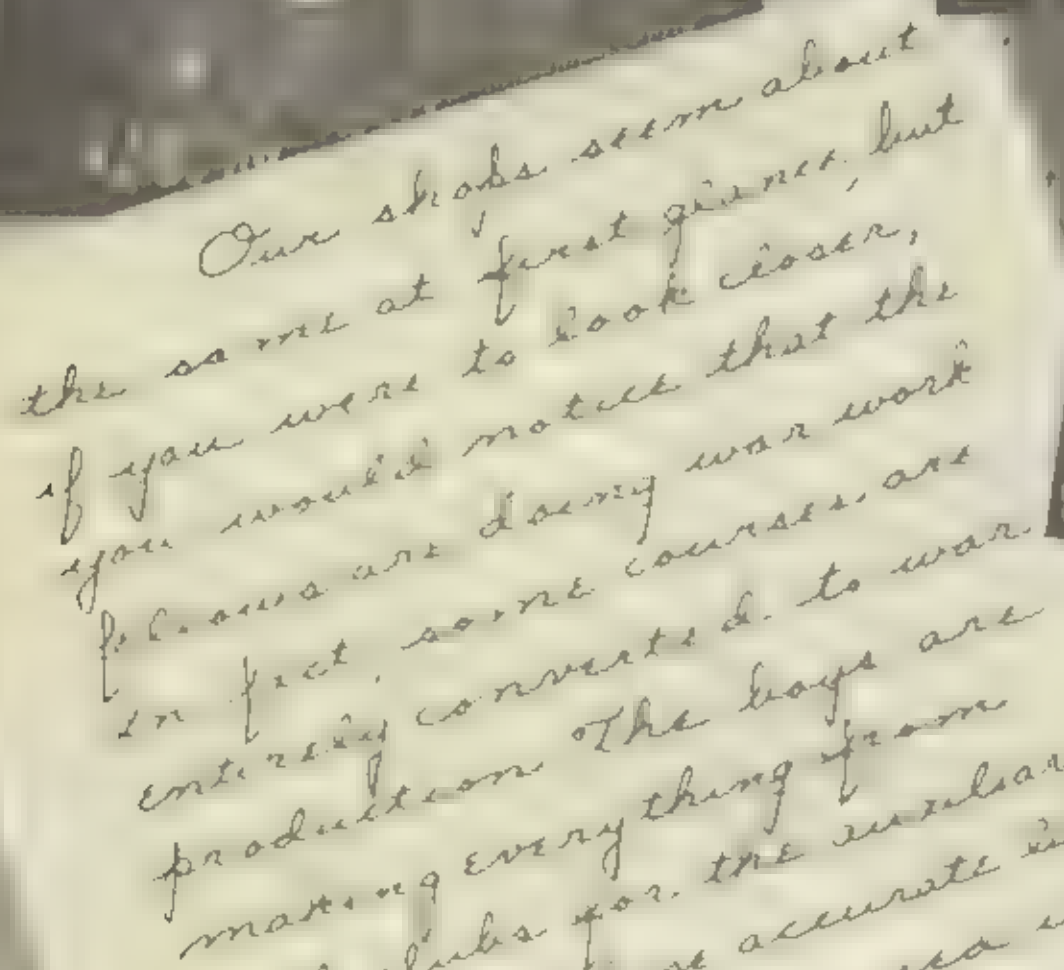 Our shops seem about
the same at first glance, but
if you were to look closer,
you would notice that the
are doing war work
In fact, some courses are
entirely converted to war
production. The boys are
making everything from
for the
accurate